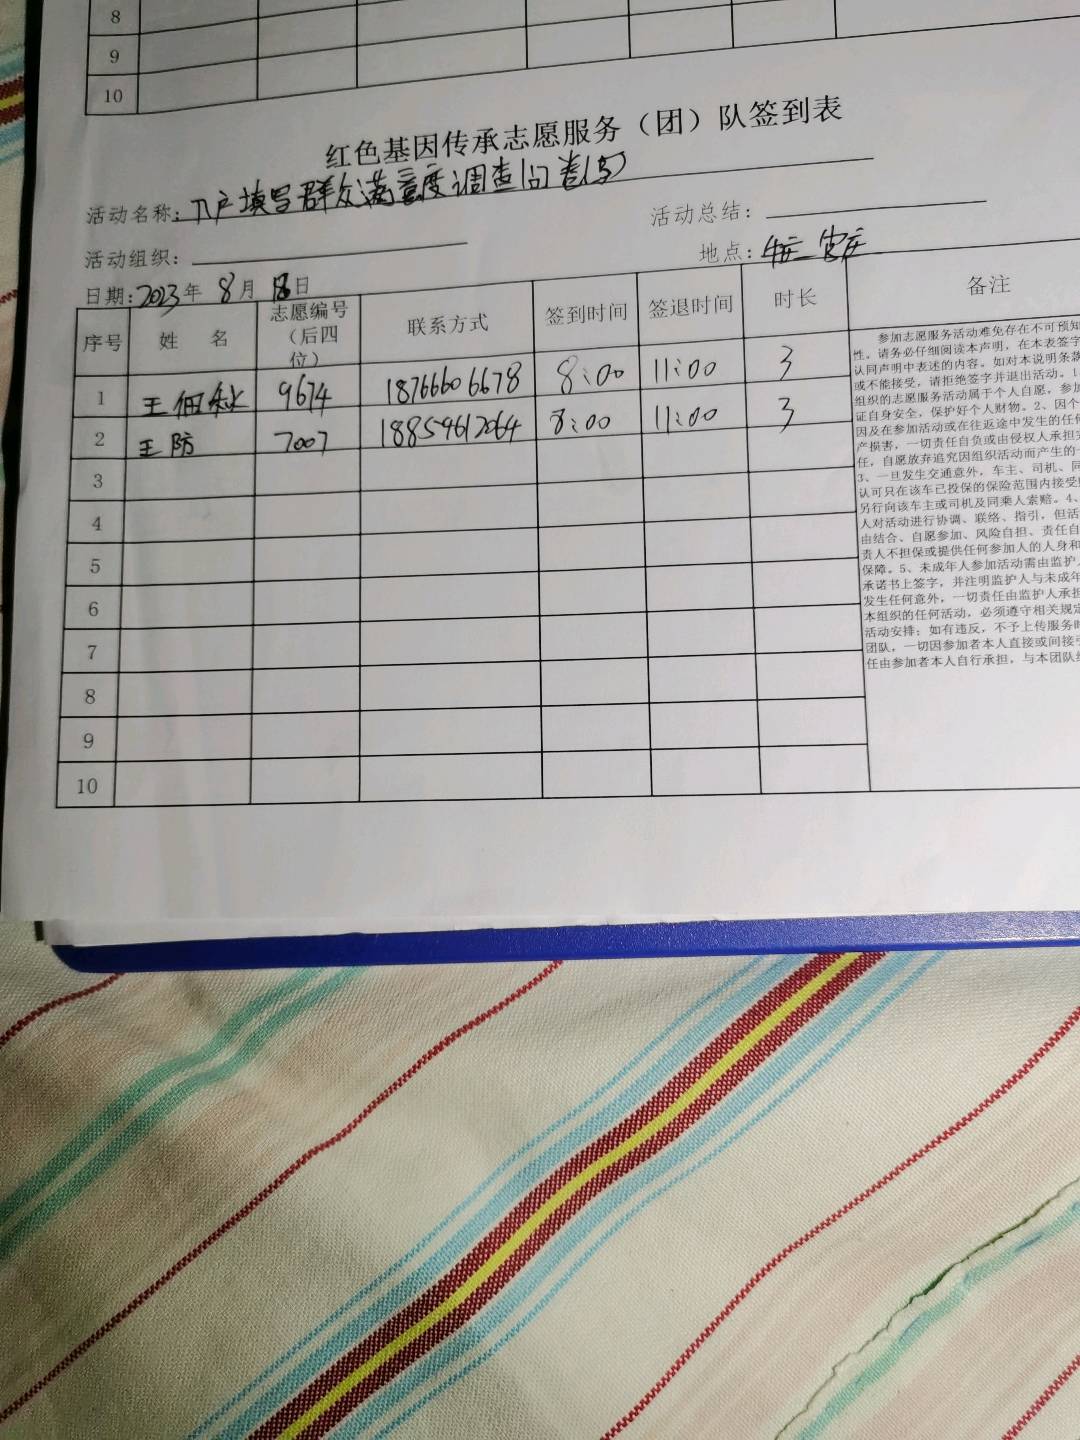 8
9
10
红色基因传承志愿服务（团）队签到表
活动名称：入户填写群众满意度调查问卷(5)
活动总结：
活动组织：
地点：
日期：2023年 8月 18日
序号 姓 名 志愿编号（后四位） 联系方式 签到时间 签退时间 时长 备注
1 王佃秋 9674 18766606678 8:00 11:00 3
2 王防 7007 18859612064 8:00 11:00 3
3
4
5
6
7
8
9
10
参加志愿服务活动难免存在不可预知
性。请务必仔细阅读本声明，在本表签字
认同声明中表述的内容。如对本说明条款
或不能接受，请拒绝签字并退出活动。1
组织的志愿服务活动属于个人自愿，参加
证自身安全，保护好个人财物。2、因个
因及在参加活动或在往返途中发生的任何
产损害，一切责任自负或由侵权人承担
任，自愿放弃追究因组织活动而产生的一
3、一旦发生交通意外，车主、司机、同
认可只在该车已投保的保险范围内接受
另行向该车主或司机及同乘人索赔。4、
人对活动进行协调、联络、指引，但活
由结合、自愿参加、风险自担、责任自
责人不担保或提供任何参加人的人身和
保障。5、未成年人参加活动需由监护
承诺书上签字，并注明监护人与未成年
发生任何意外，一切责任由监护人承担
本组织的任何活动，必须遵守相关规定
活动安排；如有违反，不予上传服务时
团队，一切因参加者本人直接或间接
任由参加者本人自行承担，与本团队